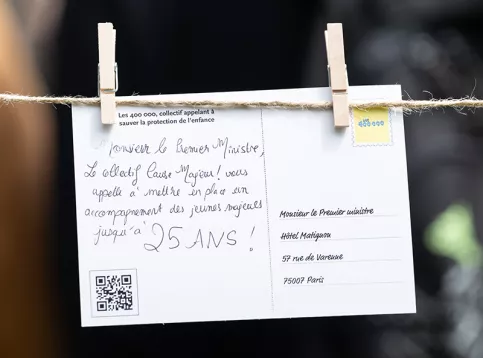 Les 400 000, collectif appelant à
sauver la protection de l'enfance
Monsieur le Premier Ministre,
Le collectif Cause Majeur! vous
appelle à mettre en place un
accompagnement des jeunes majeurs
jusqu'à 25 ANS !
LES
400 000
Monsieur le Premier ministre
Hôtel Matignon
57 rue de Varenne
75007 Paris